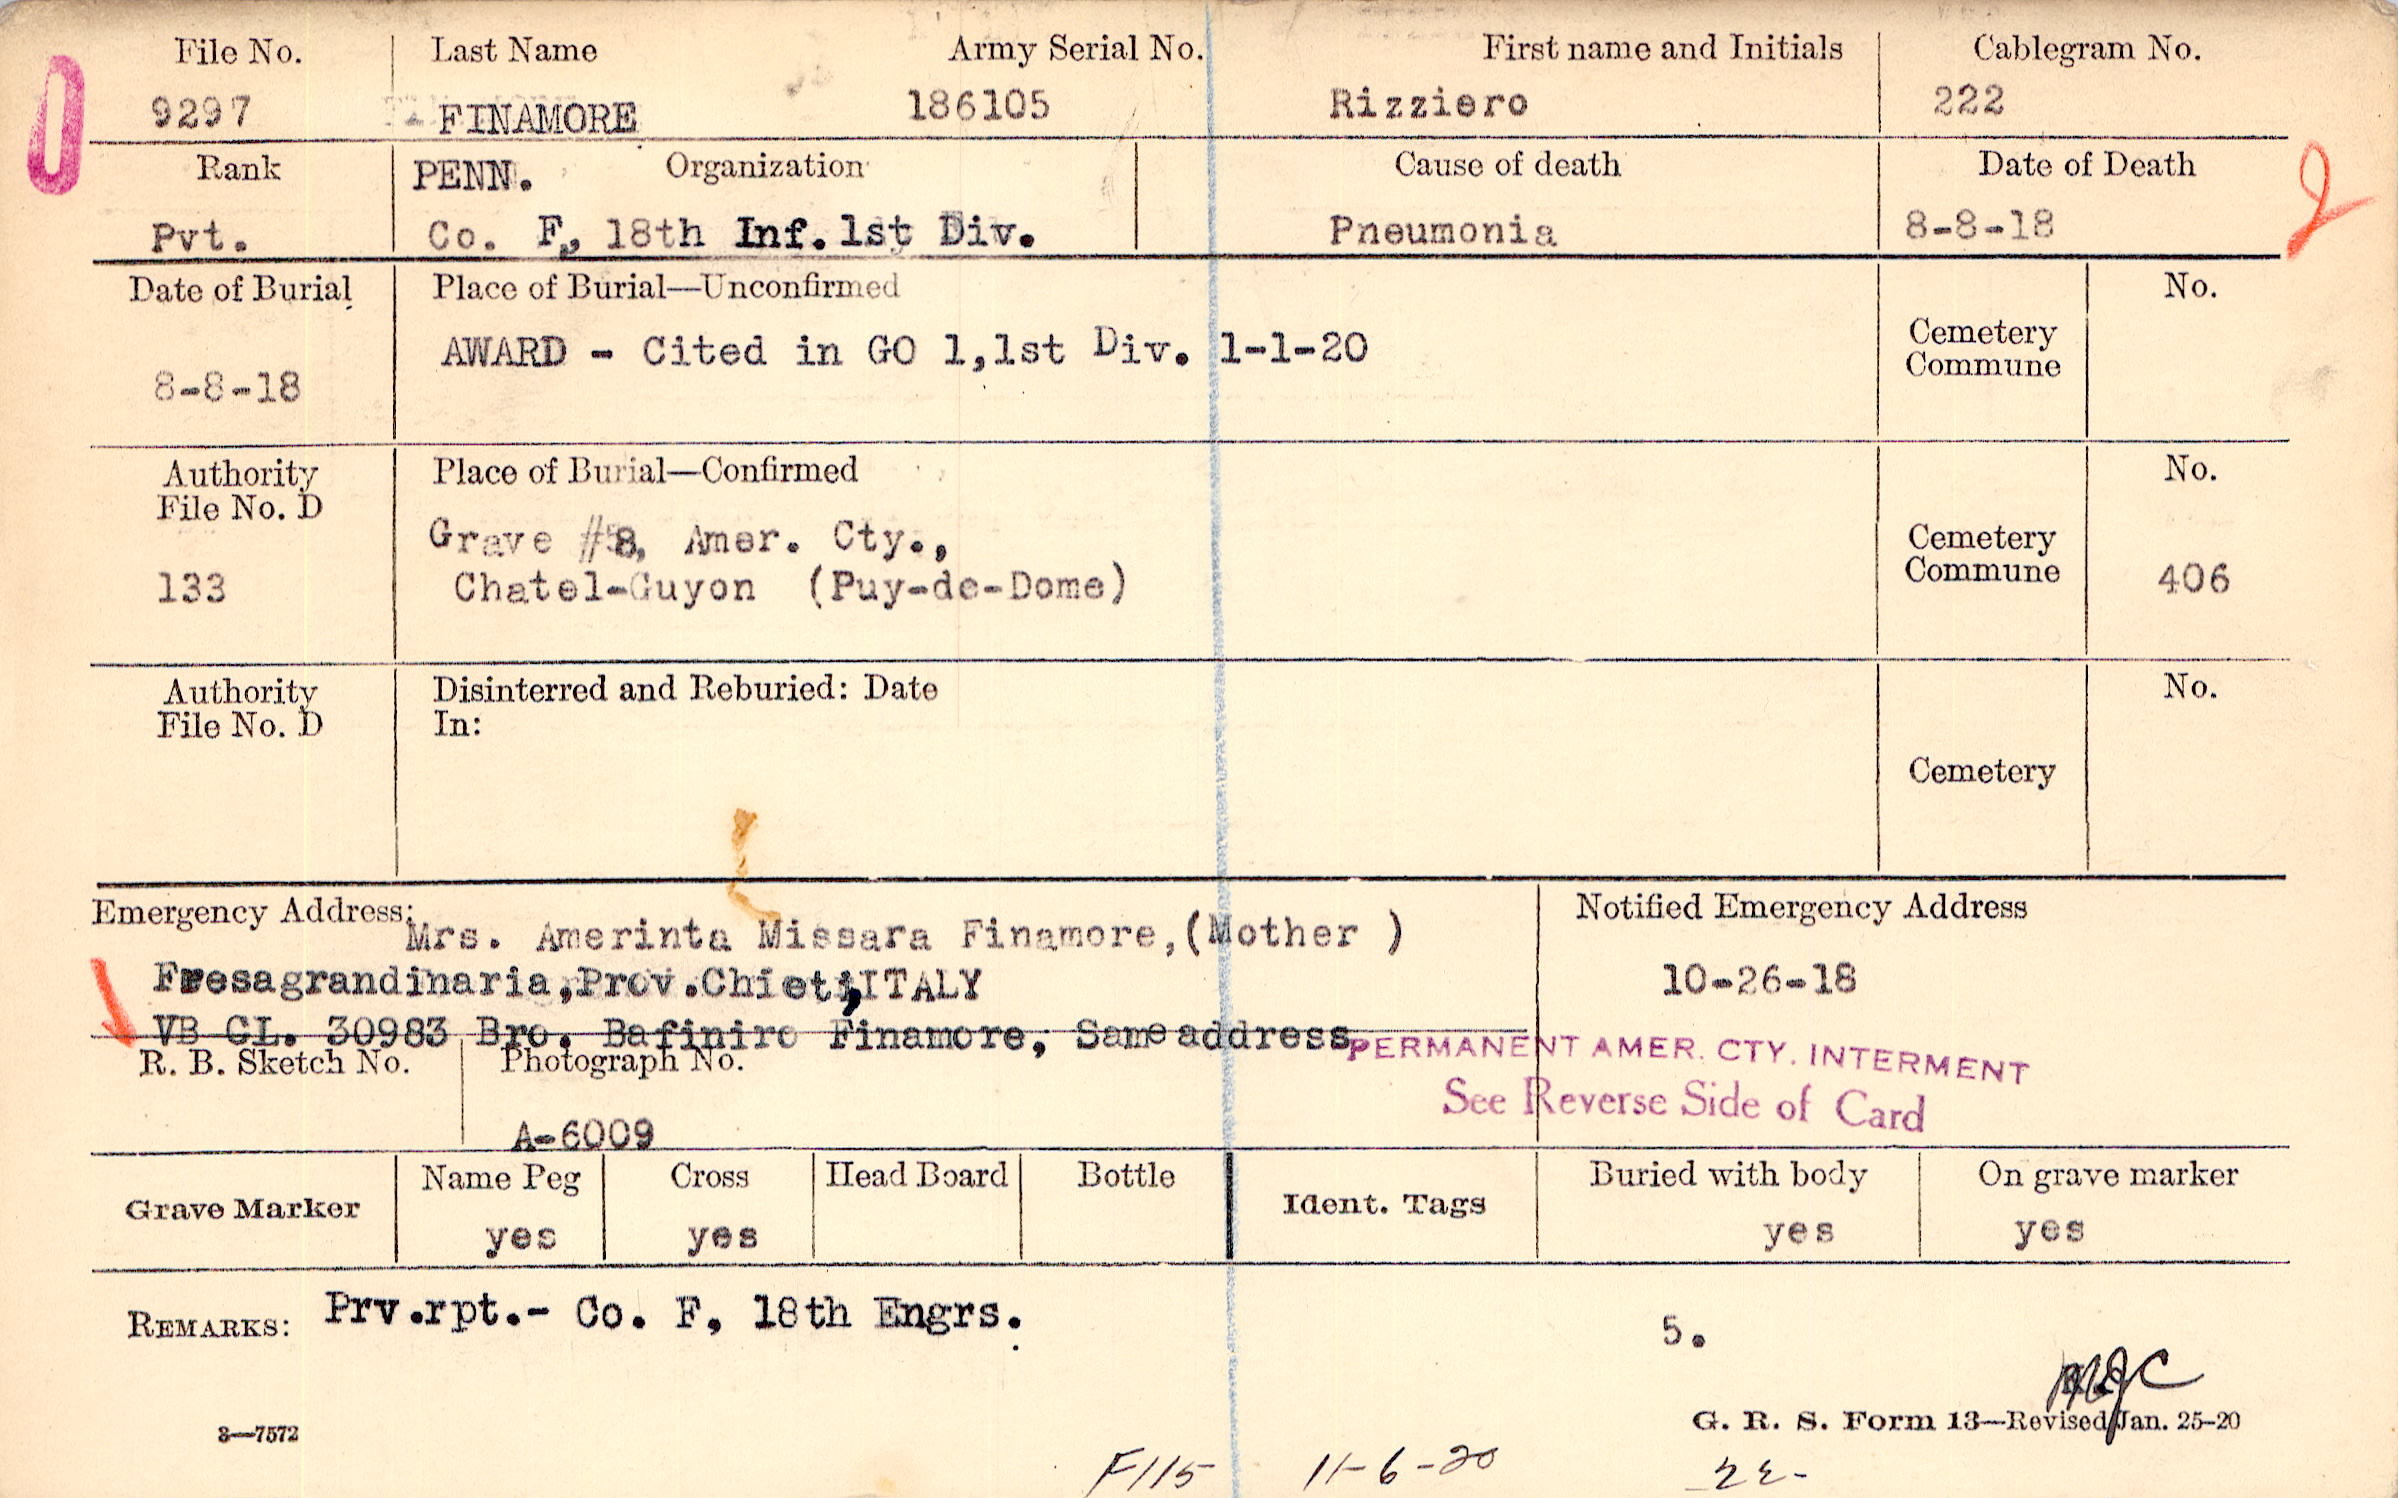 File No. Last Name Army Serial No. First name and Initials Cablegram No.
9297 FINAMORE 186105 Rizziero 222
Rank PENN. Organization Cause of death Date of Death
Pvt. Co. F, 18th Inf. 1st Div. Pneumonia 8-8-18
Date of Burial Place of Burial—Unconfirmed No.
AWARD - Cited in GO 1,1st Div. 1-1-20
Cemetery
Commune
8-8-18
Authority Place of Burial—Confirmed No.
File No. D
Grave #8, Amer. Cty., Cemetery
133 Chatel-Guyon (Puy-de-Dome) Commune 406
Authority Disinterred and Reburied: Date No.
File No. D In:
Cemetery
Emergency Address: Notified Emergency Address
Mrs. Amerinta Missara Finamore,(Mother )
Fresagrandinaria,Prov.Chieti,ITALY 10-26-18
VB CL. 30983 Bro. Bafiniro Finamore, Same address
PERMANENT AMER. CTY. INTERMENT
R. B. Sketch No. Photograph No.
See Reverse Side of Card
A-6009
Grave Marker Name Peg Cross Head Board Bottle Ident. Tags Buried with body On grave marker
yes yes yes yes
REMARKS: Prv.rpt.- Co. F, 18th Engrs. 5.
3—7572 G. R. S. Form 13—Revised Jan. 25-20
F115 11-6-20